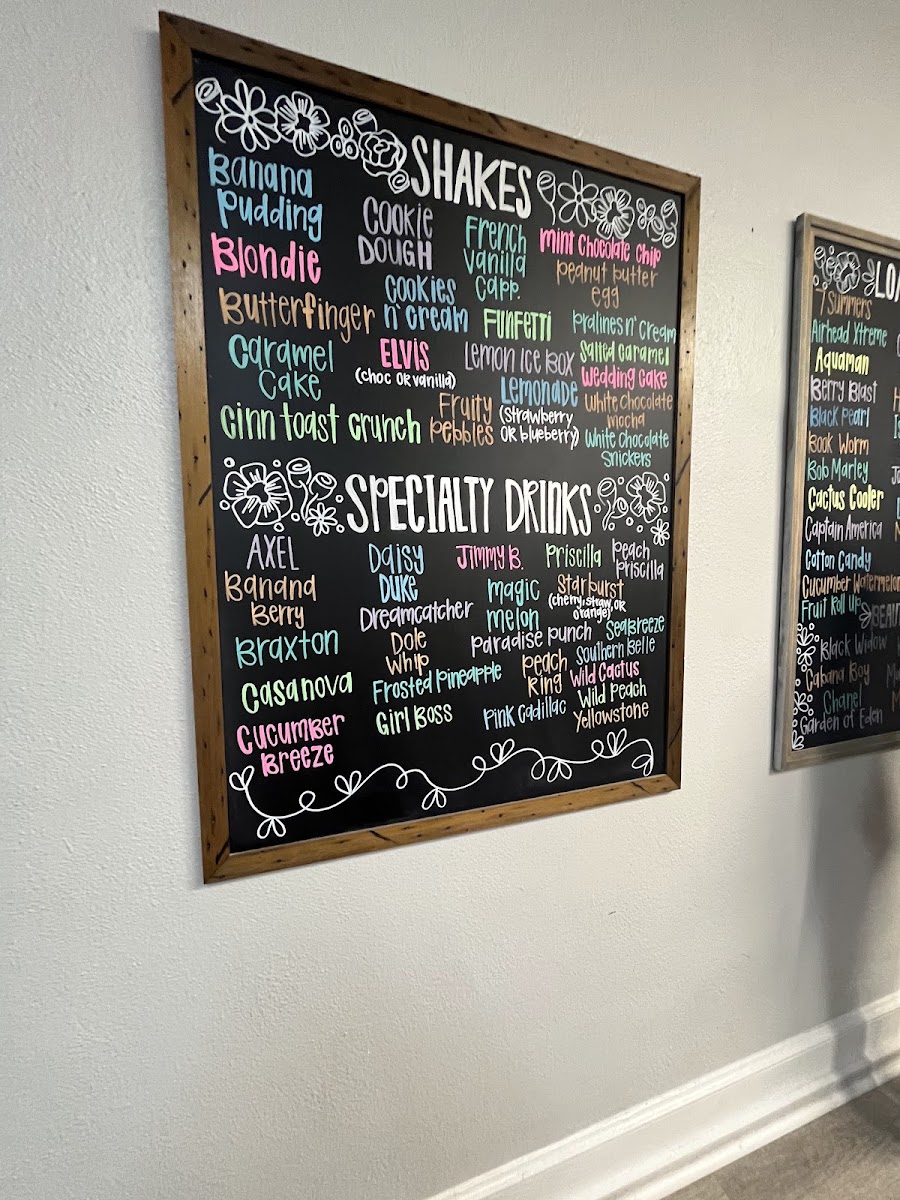 SHAKES
Banana
Pudding
Blondie
Butterfinger
Caramel
Cake
Cinn toast crunch
COOKIE
DOUGH
COOKIES
n' cream
ELVIS
(choc or vanilla)
Fruity
Pebbles
French
Vanilla
Capp.
FUNFETTI
Lemon Ice Box
Lemonade
(strawberry
or blueberry)
Mint Chocolate Chip
peanut butter
egg
Pralines n' Cream
Salted Caramel
Wedding Cake
White Chocolate
Mocha
White Chocolate
Snickers
SPECIALTY DRINKS
AXEL
Banana
Berry
Braxton
Casanova
Cucumber
Breeze
Daisy
Duke
Dreamcatcher
Dole
Whip
Frosted Pineapple
Girl Boss
Jimmy B.
Magic
Melon
Paradise Punch
Peach
Ring
Pink Cadillac
Priscilla
Peach
Priscilla
Starburst
(cherry, straw, or
orange)
SeaBreeze
Southern Belle
Wild Cactus
Wild Peach
Yellowstone
7 Summers
Airhead Xtreme
Aquaman
Berry Blast
Black Pearl
Book Worm
Bob Marley
Cactus Cooler
Captain America
Cotton Candy
Cucumber Watermelon
Fruit Roll Up
Black Widow
Cabana Boy
Chanel
Garden of Eden